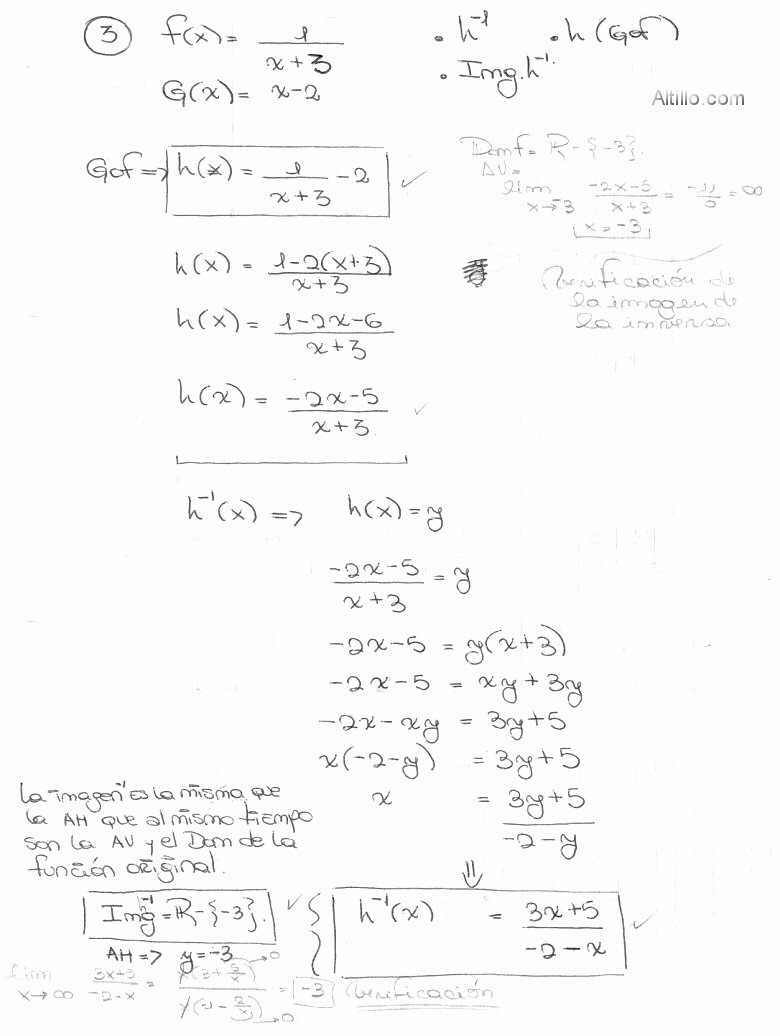 ③ f(x) = 1/(x+3) • h⁻¹ • h (Gof)
G(x) = x-2 • Img. h⁻¹.
Altillo.com
Gof => h(x) = 1/(x+3) - 2 ✓
Domf = R - {-3}.
AV =
lim x→-3 (-2x-5)/(x+3) = /0 = ∞
x = -3
Verificación de
la imagen de
la inversa
h(x) = (1-2(x+3))/(x+3)
h(x) = (1-2x-6)/(x+3)
h(x) = (-2x-5)/(x+3) ✓
h⁻¹(x) => h(x) = y
(-2x-5)/(x+3) = y
-2x-5 = y(x+3)
-2x-5 = xy+3y
-2x-xy = 3y+5
x(-2-y) = 3y+5
x = (3y+5)/(-2-y)
⇓
h⁻¹(x) = (3x+5)/(-2-x) ✓
La imagen es la misma que
la AH que al mismo tiempo
son la AV y el Dom de la
función original.
Img⁻¹ = R-{-3}. ✓
AH => y = -3
lim x→∞ (3x+5)/(-2-x) = x(3+5/x)/x(-1-2/x) = -3 Verificación